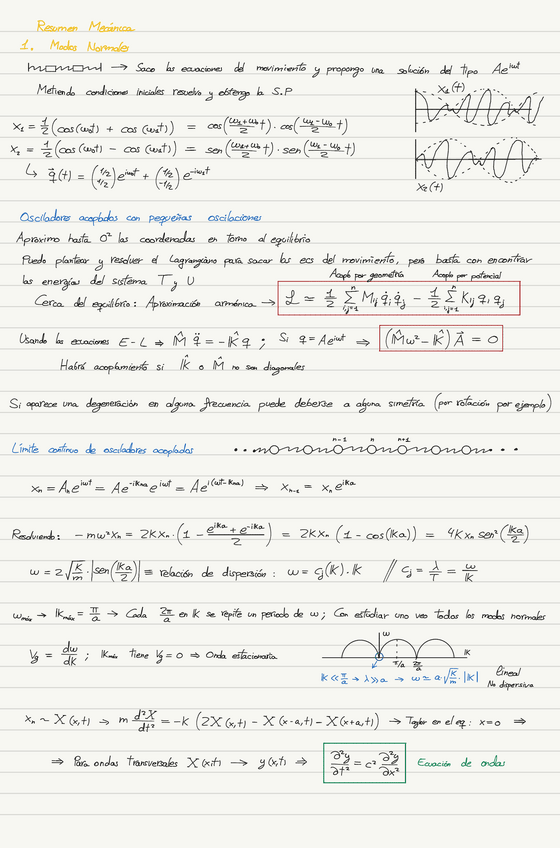 Resumen Mecánica
1. Modos Normales
→ Saco las ecuaciones del movimiento y propongo una solución del tipo Ae^{iωt}
Metiendo condiciones iniciales resuelvo y obtengo la S.P
X₁(t)
x₁ = 1/2 (cos(ω₂t) + cos(ω₁t)) = cos((ω₂+ω₁)/2 t) · cos((ω₂-ω₁)/2 t)
x₂ = 1/2 (cos(ω₁t) - cos(ω₂t)) = sen((ω₂+ω₁)/2 t) · sen((ω₂-ω₁)/2 t)
X₂(t)
↳ q⃗(t) = (1/2 1/2) e^{iω₁t} + (1/2 -1/2) e^{-iω₂t}
Osciladores acoplados con pequeñas oscilaciones
Aproximo hasta O² las coordenadas en torno al equilibrio
Puedo plantear y resolver el Lagrangiano para sacar las ecs del movimiento, pero basta con encontrar
las energías del sistema T y U
Acoplo por geometría Acoplo por potencial
Cerca del equilibrio: Aproximación armónica → ℒ ≃ 1/2 Σ^n_{i,j=1} M_{ij} q̇_i q̇_j - 1/2 Σ^n_{i,j=1} K_{ij} q_i q_j
Usando las ecuaciones E-L ⇒ M̂ q̈ = -K̂ q ; Si q = Ae^{iωt} ⇒ (M̂ω² - K̂) A⃗ = 0
Habrá acoplamiento si K̂ o M̂ no son diagonales
Si aparece una degeneración en alguna frecuencia puede deberse a alguna simetría (por rotación por ejemplo)
Límite continuo de osciladores acoplados
n-1 n n+1
x_n = A_n e^{iωt} = Ae^{-ikna} e^{iωt} = Ae^{i(ωt-kna)} ⇒ x_{n-1} = x_n e^{ika}
Resolviendo: -mω²x_n = 2Kx_n · (1 - (e^{ika} + e^{-ika})/2) = 2Kx_n (1 - cos(ka)) = 4Kx_n sen²(ka/2)
ω = 2√(K/m) · |sen(ka/2)| ≡ relación de dispersión: ω = c_f(k) · k // c_f = λ/T = ω/k
ω_máx → k_máx = π/a → Cada 2π/a en k se repite un periodo de ω; Con estudiar uno veo todos los modos normales
V_g = dω/dk ; k_máx tiene V_g = 0 ⇒ Onda estacionaria
ω k π/a 2π/a
k << π/a → λ >> a → ω ≃ a·√(K/m) · |k|
lineal
No dispersiva
x_n ~ X(x,t) → m d²X/dt² = -K (2X(x,t) - X(x-a,t) - X(x+a,t)) → Taylor en el eq: x=0 ⇒
⇒ Para ondas transversales X(x,t) → y(x,t) ⇒ ∂²y/∂t² = c² ∂²y/∂x² Ecuación de ondas